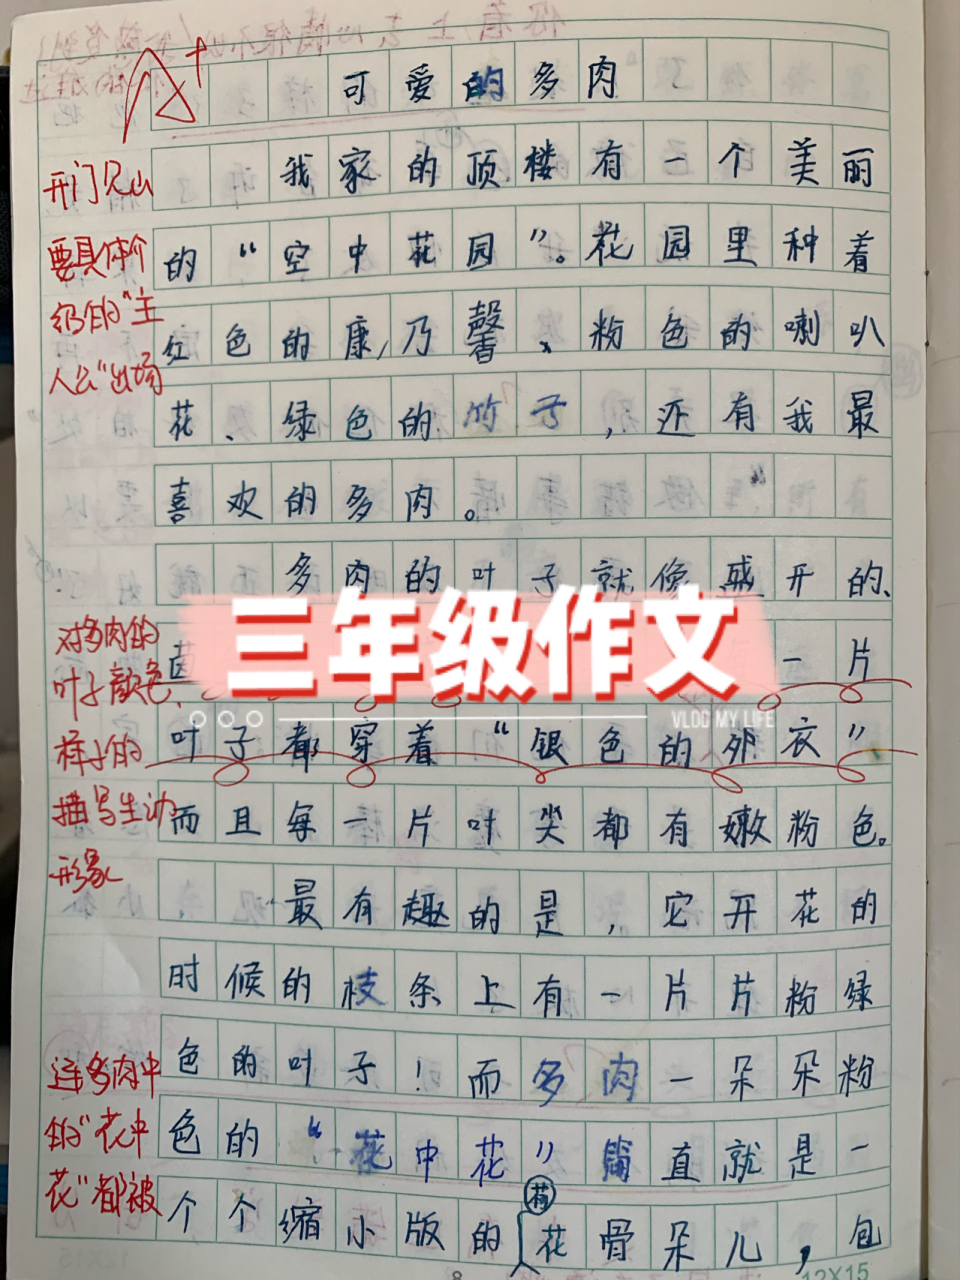 A+
可爱的多肉
我家的顶楼有一个美丽
的“空中花园”。花园里种着
红色的康乃馨、粉色的喇叭
花、绿色的竹子,还有我最
喜欢的多肉。
多肉的叶子就像盛开的、
一片
叶子都穿着“银色的外衣”
而且每一片叶尖都有嫩粉色。
最有趣的是,它开花的
时候的枝条上有一片片粉绿
色的叶子!而多肉一朵朵粉
色的“花中花”简直就是一
个个缩小版的荷花骨朵儿,包
开门见山
要具体介
绍的“主
人公”出场
对多肉的
叶子颜色、
样子的
描写生动
形象
连多肉中
的“花中
花”都被
三年级作文
VLOG MY LIFE
8
12X15